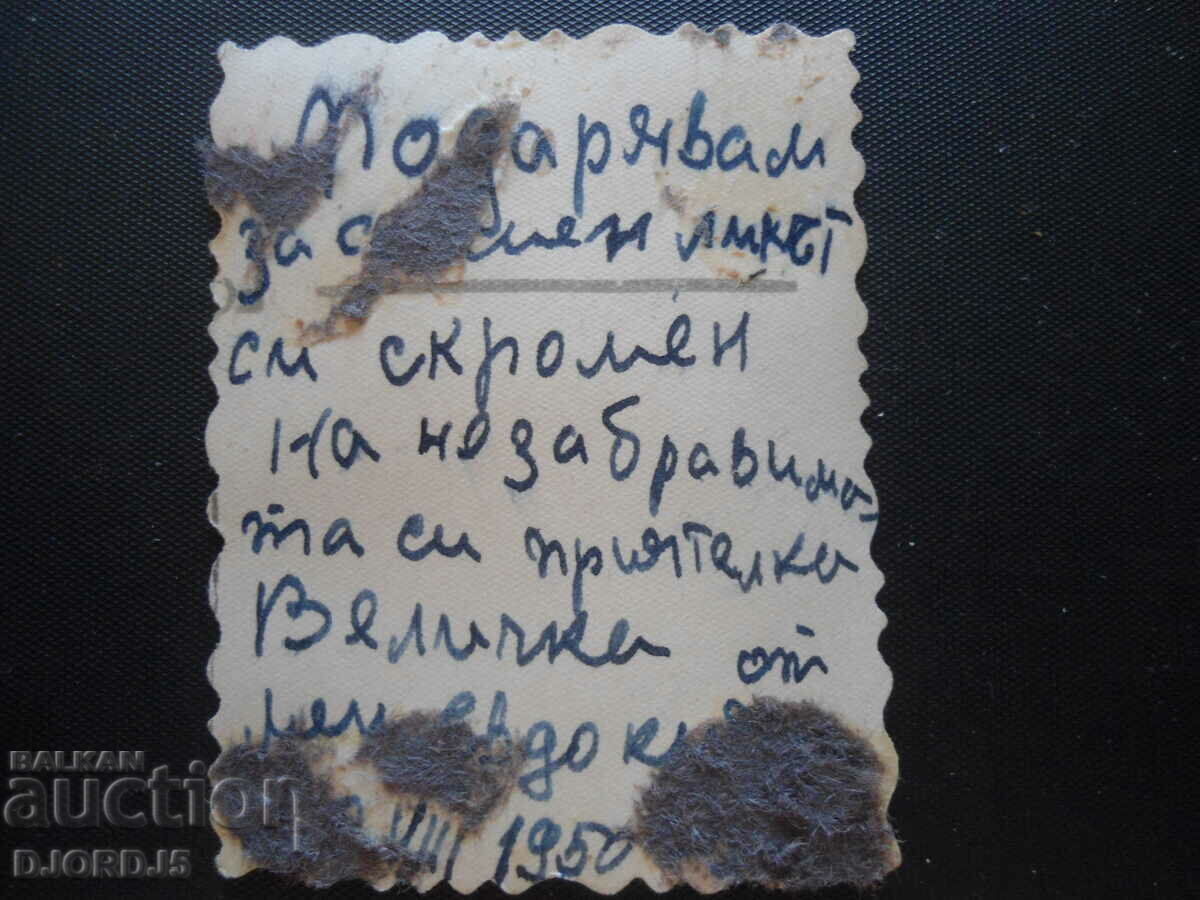 Подарявам
за с мен ликът
си скромен
на незабравима-
та си приятелка
Величка от
мен
VIII 1950
BALKAN
auction
DJORDJ5